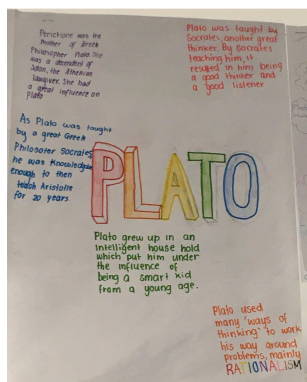 Perictione was the
Mother of Greek
Philosopher Plato. She
was a decendent of
Solon, the Athenian
lawgiver. She had
a great influence on
Plato
Plato was taught by
Socrates, another great
thinker. By Socrates
teaching him, it
resulted in him being
a good thinker and
a good listener
As Plato was taught
by a great Greek
Philosoter Socrates,
he was knowledge
enough to then
teash Aristotle
for 20 years
PLATO
Plato grew up in an
intelligent house hold
which put him under
the influence of
being a smart kid
from a young age.
Plato used
many 'ways of
thinking' to work
his way around
problems, mainly
RATIONALISM